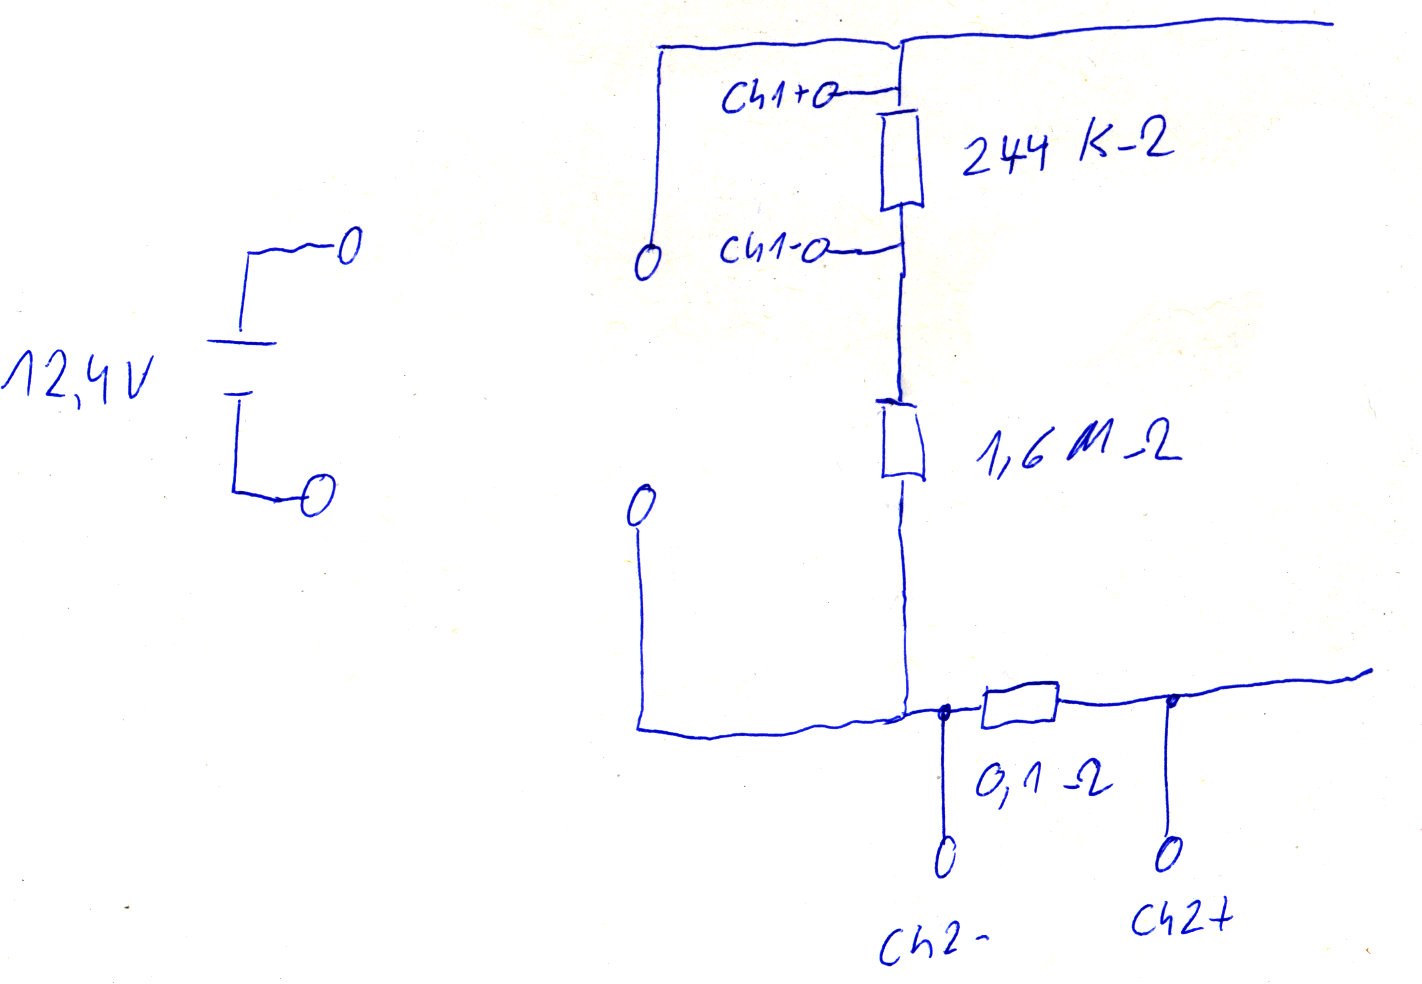 Ch1+
244 KΩ
Ch1-
12,4V
1,6 MΩ
0,1 Ω
Ch2-
Ch2+